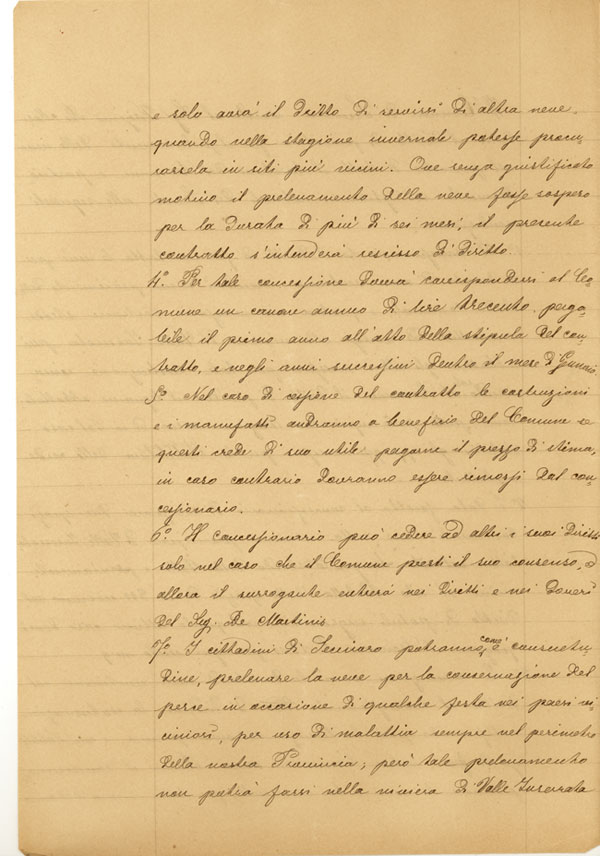 e solo avrà il dritto di servirsi di altra neve
quando nella stagione invernale potesse procu-
rarsela in siti più vicini. Ove senza giustificato
motivo il prelevamento della neve fosse sospeso
per la durata di più di sei mesi, il presente
contratto s'intenderà rescisso di diritto.
4.° Per tale concessione dovrà corrispondersi al Co-
mune un canone annuo di lire trecento paga-
bile il primo anno all'atto della stipula del con-
tratto, e negli anni successivi dentro il mese di Gennaio
5.° Nel caso di del contratto le costruzioni
e i manufatti andranno a beneficio del Comune se
questi crede di suo utile pagarne il prezzo di stima,
in caso contrario dovranno essere rimossi dal con-
cessionario.
6.° Il concessionario può cedere ad altri i suoi diritti
solo nel caso che il Comune presti il suo consenso, ed
allora il surrogante entrerà nei diritti e nei doveri
del Sig. De Martinis
7.° I cittadini di Secinaro potranno, com'è consuetu-
dine, prelevare la neve per la conservazione del
pesce in occasione di qualche festa nei paesi vi-
ciniori, per uso di malattia sempre nel perimetro
della nostra Provincia; però tale prelevamento
non potrà farsi nella niviera di Valle